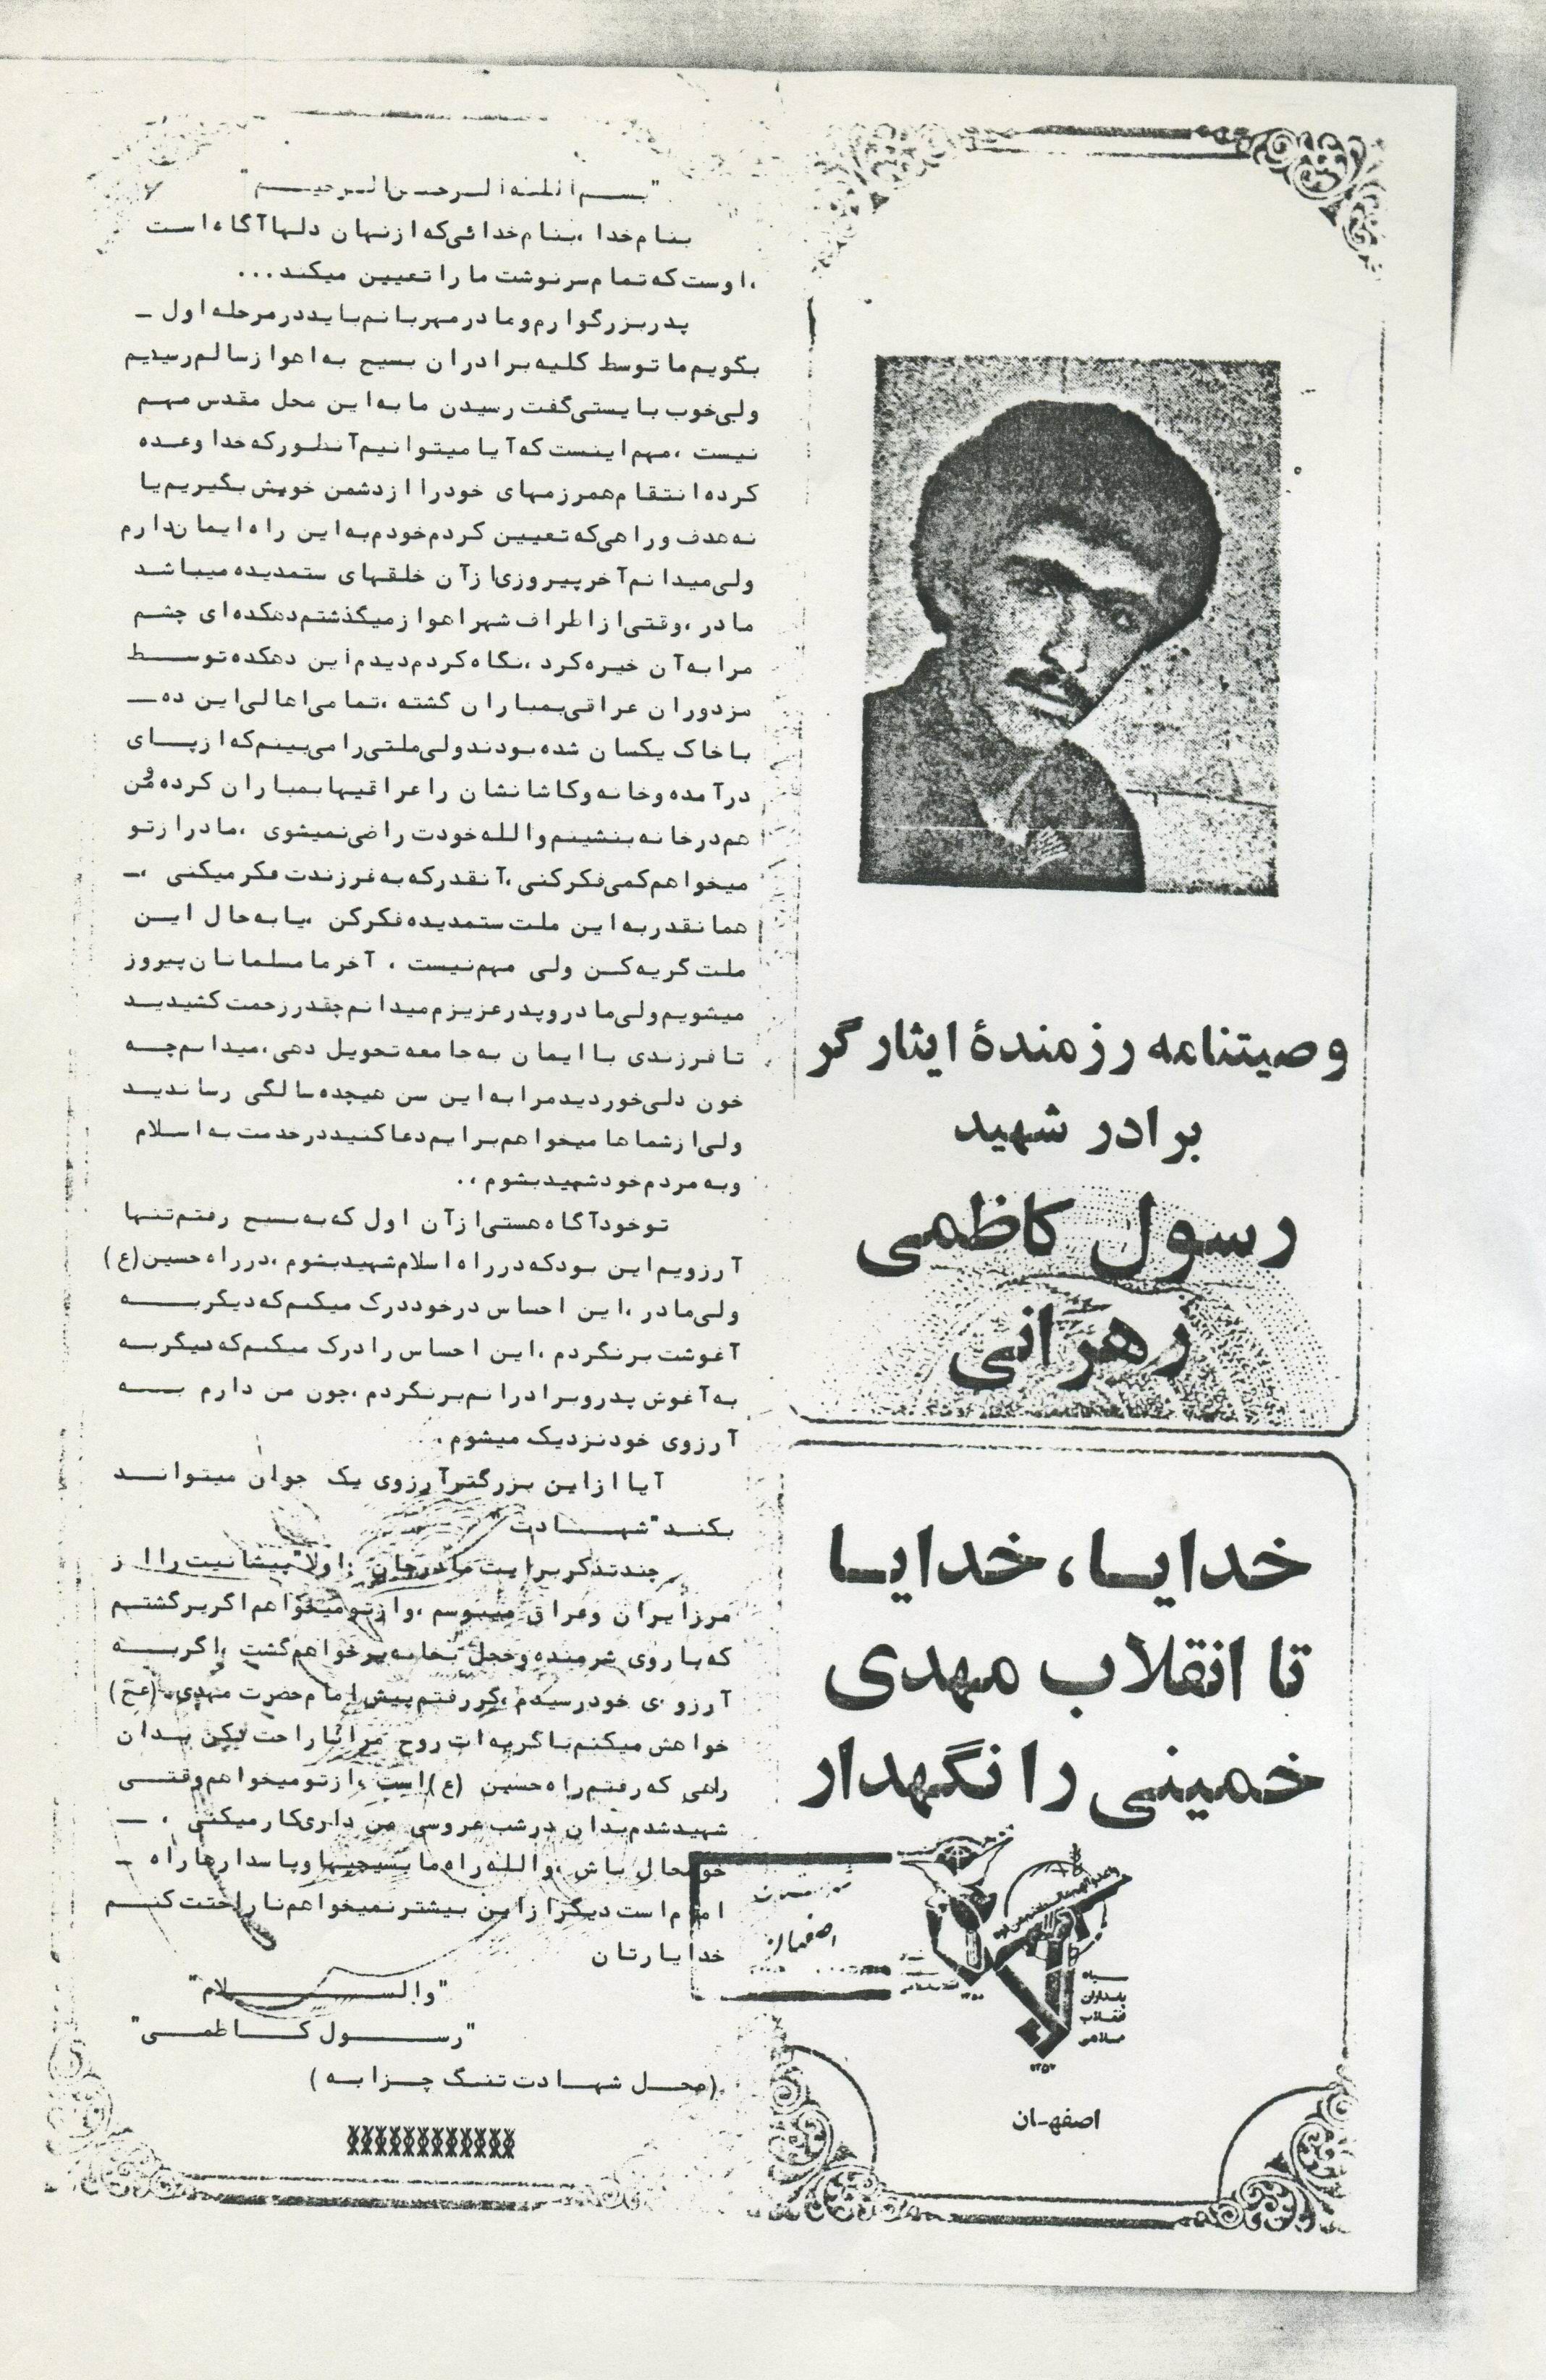 وصیتنامه رزمندهٔ ایثارگر
برادر شهید
رسول کاظمی
زهرانی
خدایا، خدایا
تا انقلاب مهدی
خمینی را نگهدار
سپاه
پاسداران
انقلاب
اسلامی
۱۳۵۷
اصفهان
"بسم الله الرحمن الرحیم"
بنام خدا ،بنام خدائی که از نهان دلها آگاه است
،اوست که تمام سرنوشت ما را تعیین میکند...
پدر بزرگوارم و مادر مهربانم باید در مرحله اول ـ
بگویم ما توسط کلیه برادران بسیج به اهواز سالم رسیدیم
ولی خوب بایستی گفت رسیدن ما به این محل مقدس مهم
نیست ،مهم اینست که آیا میتوانیم آنطور که خدا وعده
کرده انتقام همرزمهای خود را از دشمن خویش بگیریم یا
نه هدف و راهی که تعیین کردم خودم به این راه ایمان دارم
ولی میدانم آخر پیروزی از آن خلقهای ستمدیده میباشد
مادر ،وقتی از اطراف شهر اهواز میگذشتم دهکده ای چشم
مرا به آن خیره کرد ،نگاه کردم دیدم این دهکده توسط
مزدوران عراقی بمباران گشته ،تمامی اهالی این ده ـ
با خاک یکسان شده بودند ولی ملتی را می بینم که از پای
درآمده و خانه و کاشانشان را عراقیها بمباران کرده و من
هم در خانه بنشینم والله خودت راضی نمیشوی ،مادر از تو
میخواهم کمی فکر کنی ،آنقدر که به فرزندت فکر میکنی ،ـ
همانقدر به این ملت ستمدیده فکر کن ،یا به حال این
ملت گریه کن ولی مهم نیست ، آخر ما مسلمانان پیروز
میشویم ولی مادر و پدر عزیزم میدانم چقدر زحمت کشیدید
تا فرزندی با ایمان به جامعه تحویل دهی ،میدانم چه
خون دلی خوردید مرا به این سن هیجده سالگی رساندید
ولی از شماها میخواهم برایم دعا کنید در خدمت به اسلام
و به مردم خود شهید بشوم ،.
تو خود آگاه هستی از آن اول که به بسیج رفتم تنها
آرزویم این بود که در راه اسلام شهید بشوم ،در راه حسین (ع)
ولی مادر ،این احساس در خود درک میکنم که دیگر به
آغوشت برنگردم ،این احساس را درک میکنم که دیگر به
به آغوش پدر و برادرانم برنگردم ،چون من دارم به
آرزوی خود نزدیک میشوم .
آیا از این بزرگتر آرزوی یک جوان میتواند
بکند "شهادت"
چند تذکر برایت مادر جان :اولا" پیشانیت را از
مرز ایران و عراق میبوسم ،و از تو میخواهم اگر برگشتم
که با روی شرمنده و خجل بخانه برخواهم گشت ،اگر به
آرزوی خود رسیدم ،گر رفتم پیش امام حضرت مهدی (عج)
خواهش میکنم با گریه ات روح مرا ناراحت نکن بدان
راهی که رفتم راه حسین (ع) است ،از تو میخواهم وقتی
شهید شدم بدان در شب عروسی من داری کار میکنی ، ـ
خوشحال باش ،والله راه ما بسیجیها و پاسدارها راه ـ
امام است دیگر از این بیشتر نمیخواهم ناراحتت کنم
خدا یارتان
"والسلام"
"رسول کاظمی"
(محل شهادت تنگ چزابه)